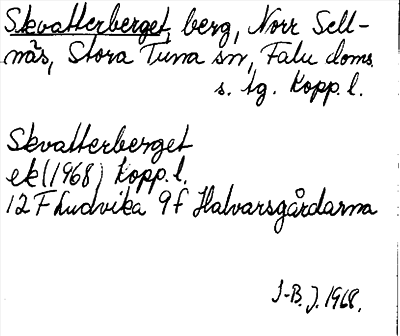 Skvatterberget, berg, Norr Sell-
näs, Stora Tuna sn, Falu doms.
s. tg. Kopp. l.
Skvatterberget
ek (1968) Kopp. l.
12 F Ludvika 9 f Halvarsgårdarna
J-B. J. 1968.